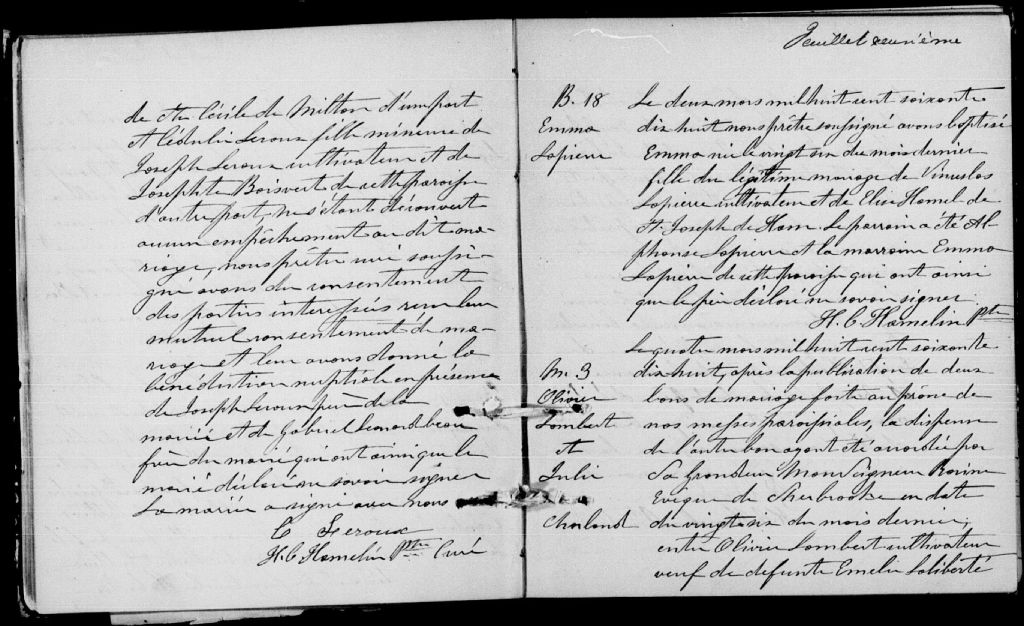 de Ste Cécile de Milton d'une part
et Cédulie Leroux fille mineure de
Joseph Leroux cultivateur et de
Josephte Boisvert de cette paroisse
d'autre part, ne s'étant découvert
aucun empêchement au dit ma-
riage, nous prêtre curé soussi-
gné avons du consentement
des parties intéressées reçu leur
mutuel consentement de ma-
riage et leur avons donné la
bénédiction nuptiale en présence
de Joseph Leroux père de la
mariée et de Gabriel beau
frère du marié qui ont ainsi que le
marié déclaré ne savoir signer
La mariée a signé avec nous
C Leroux
H. C Hamelin Ptre Curé
Feuillet deuxième
B. 18
Emma
Lapierre
Le deux mars mil huit cent soixante
dix huit nous prêtre soussigné avons baptisé
Emma née le vingt six du mois dernier
fille du légitime mariage de
Lapierre cultivateur et de Elise Hamel de
St Joseph de Ham. Le parrain a été Al-
phonse Lapierre et la marraine Emma
Lapierre de cette paroisse qui ont ainsi
que le père déclaré ne savoir signer
H. C Hamelin Ptre
M. 3
Olivier
Lambert
et
Julie
Charland
Le quatre mars mil huit cent soixante
dix huit, après la publication de deux
bans de mariage faite au prône de
nos messes paroissiales, la dispense
de l'autre ban ayant été accordée par
Sa Grandeur Monseigneur Racine
Evêque de Sherbrooke en date
du vingt six du mois dernier,
entre Olivier Lambert cultivateur
veuf de defunte Emelie Laliberté